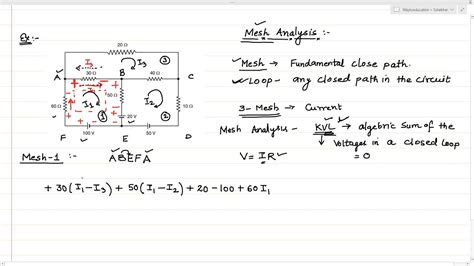 Ex:-
Mesh Analysis :-
20 Ω
I3
3
A
30 Ω
B
40 Ω
C
60 Ω
I1
50 Ω
I2
1
2
F
100 V
E
50 V
D
Mesh → Fundamental close path.
Loop - any closed path in the circuit
3- Mesh → Current
Mesh Analysis - KVL → algebric sum of the
Voltages in a closed loop
V = IR
= 0
Mesh-1 :- ABEFA
+ 30(I1-I3) + 50(I1-I2) + 20 - 100 + 60 I1